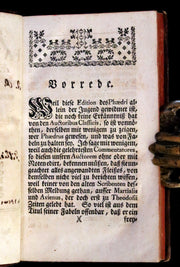 Vorrede.
Weil diese Edition des Phædri al-
lein der Jugend gewidmet ist,
die noch keine Erkänntniß hat
von den Auctoribus Classicis, so ist vonnö-
then, derselben mit wenigem zu zeigen,
wer Phædrus gewesen, und was von Fa-
beln zu halten sey. Ich sage mit wenigem,
weil auch die gelehrtesten Commentatores,
so diesen unsern Auctorem ohne oder mit
Noten edirt, bekennen müssen, daß sie un-
geachtet alles angewandten Fleisses, von
demselben nicht viel zu berichten wissen,
weil keiner von den alten Scribenten des-
selben Meldung gethan, ausser Martialis
und Avienus, der doch erst zu Theodosii
Zeiten gelebt hat. So viel ist aus dem
Titul seiner Fabeln offenbar, daß er ein
X
frey-